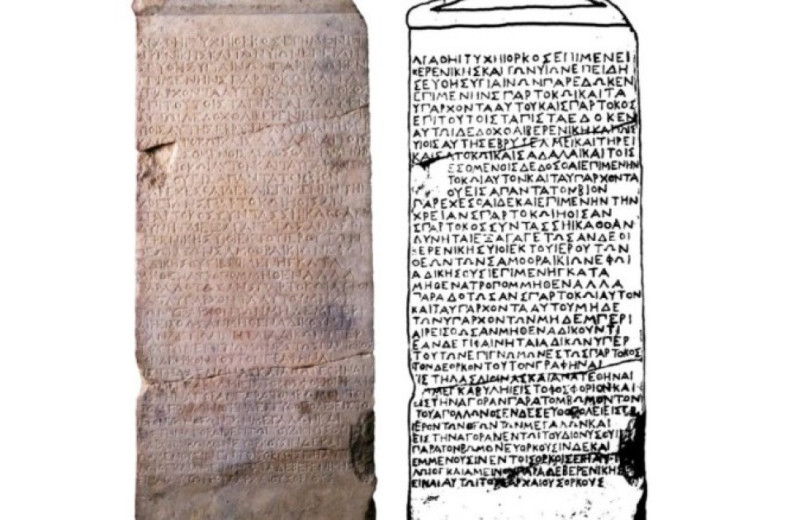 ΑΓΑΘΗΙΤΥΧΗΙΟΡΚΟΣΕΠΙΜΕΝΕΙ
ΒΕΡΕΝΙΚΗΣΚΑΙΤΩΝΥΙΩΝΕΠΕΙΔΗ
ΣΕΥΘΗΣΥΓΙΑΙΝΩΝΠΑΡΕΔΩΚΕΝ
ΕΠΙΜΕΝΗΝΣΠΑΡΤΟΚΩΙΚΑΙΤΑ
ΥΠΑΡΧΟΝΤΑΑΥΤΟΥΚΑΙΣΠΑΡΤΟΚΟΣ
ΕΠΙΤΟΥΤΟΙΣΤΑΠΙΣΤΑΕΔΟΚΕΝ
ΑΥΤΩΙΔΕΔΟΧΘΑΙΒΕΡΕΝΙΚΗΚΑΙΤΟΙΣ
ΥΙΟΙΣΑΥΤΗΣΕΒΡΥΖΕΛΜΕΙΚΑΙΤΗΡΕΙ
ΚΑΙΣΑΤΟΚΩΙΚΑΙΣΑΔΑΛΑΙΚΑΙΤΟΙΣ
ΕΣΟΜΕΝΟΙΣΔΕΔΟΣΘΑΙΕΠΙΜΕΝΗΝ
ΤΟΚΩΙΑΥΤΟΝΚΑΙΤΑΥΠΑΡΧΟΝΤΑ
ΟΥΕΙΣΑΠΑΝΤΑΤΟΝΒΙΟΝ
ΠΑΡΕΧΕΣΘΑΙΔΕΚΑΙΕΠΙΜΕΝΗΝΤΗΝ
ΧΡΕΙΑΝΣΠΑΡΤΟΚΩΙΗΟΙΣΑΝ
ΣΠΑΡΤΟΚΟΣΣΥΝΤΑΣΣΗΙΚΑΘΟΑΝ
ΔΥΝΗΤΑΙΕΞΑΓΑΓΕΤΩΣΑΝΔΕΟΙ
ΒΕΡΕΝΙΚΗΣΥΙΟΙΕΚΤΟΥΙΕΡΟΥΤΩΝ
ΘΕΩΝΤΩΝΣΑΜΟΘΡΑΙΚΙΩΝΕΦΩΙ
ΑΔΙΚΗΣΟΥΣΙΕΠΙΜΕΝΗΓΚΑΤΑ
ΜΗΘΕΝΑΤΡΟΠΟΜΜΗΘΕΝΑΛΛΑ
ΠΑΡΑΔΟΤΩΣΑΝΣΠΑΡΤΟΚΩΙΑΥΤΟΝ
ΚΑΙΤΑΥΠΑΡΧΟΝΤΑΑΥΤΟΥΜΗΔΕ
ΤΩΝΥΠΑΡΧΟΝΤΩΝΜΗΔΕΜΠΕΡΙ
ΑΙΡΕΙΣΘΩΣΑΝΜΗΘΕΝΑΔΙΚΟΥΝΤΙ
ΕΑΝΔΕΤΙΦΑΙΝΗΤΑΙΑΔΙΚΩΝΥΠΕΡ
ΤΟΥΤΩΝΕΠΙΓΝΩΜΩΝΕΣΤΩΣΠΑΡΤΟΚΟΣ
ΤΟΝΔΕΟΡΚΟΝΤΟΥΤΟΝΓΡΑΦΗΝΑΙ
ΕΙΣΤΗΛΑΣΛΙΘΙΝΑΣΚΑΙΑΝΑΤΕΘΗΝΑΙ
ΜΕΓΚΑΒΥΛΗΙΕΙΣΤΟΦΟΣΦΟΡΙΟΝΚΑΙ
ΕΙΣΤΗΝΑΓΟΡΑΝΠΑΡΑΤΟΜΒΩΜΟΝΤΟΝ
ΤΟΥΑΠΟΛΛΩΝΟΣΕΝΔΕΣΕΥΘΟΠΟΛΕΙΕΙΣΤΟ
ΙΕΡΟΝΤΩΝΘΕΩΝΤΩΜΜΕΓΑΛΩΝΚΑΙ
ΕΙΣΤΗΝΑΓΟΡΑΝΕΝΤΩΙΤΟΥΔΙΟΝΥΣΟΥΙ
ΠΑΡΑΤΟΝΒΩΜΟΝ
ΕΜΜΕΝΟΥΣΙΝΕΝΤΟΙΣΟΡΚΟΙΣ
ΒΕΡΕΝΙΚΗΣ
ΕΙΝΑΙΑΥΤΩΙΤΟΥΣΑΡΧΑΙΟΥΣΟΡΚΟΥΣ